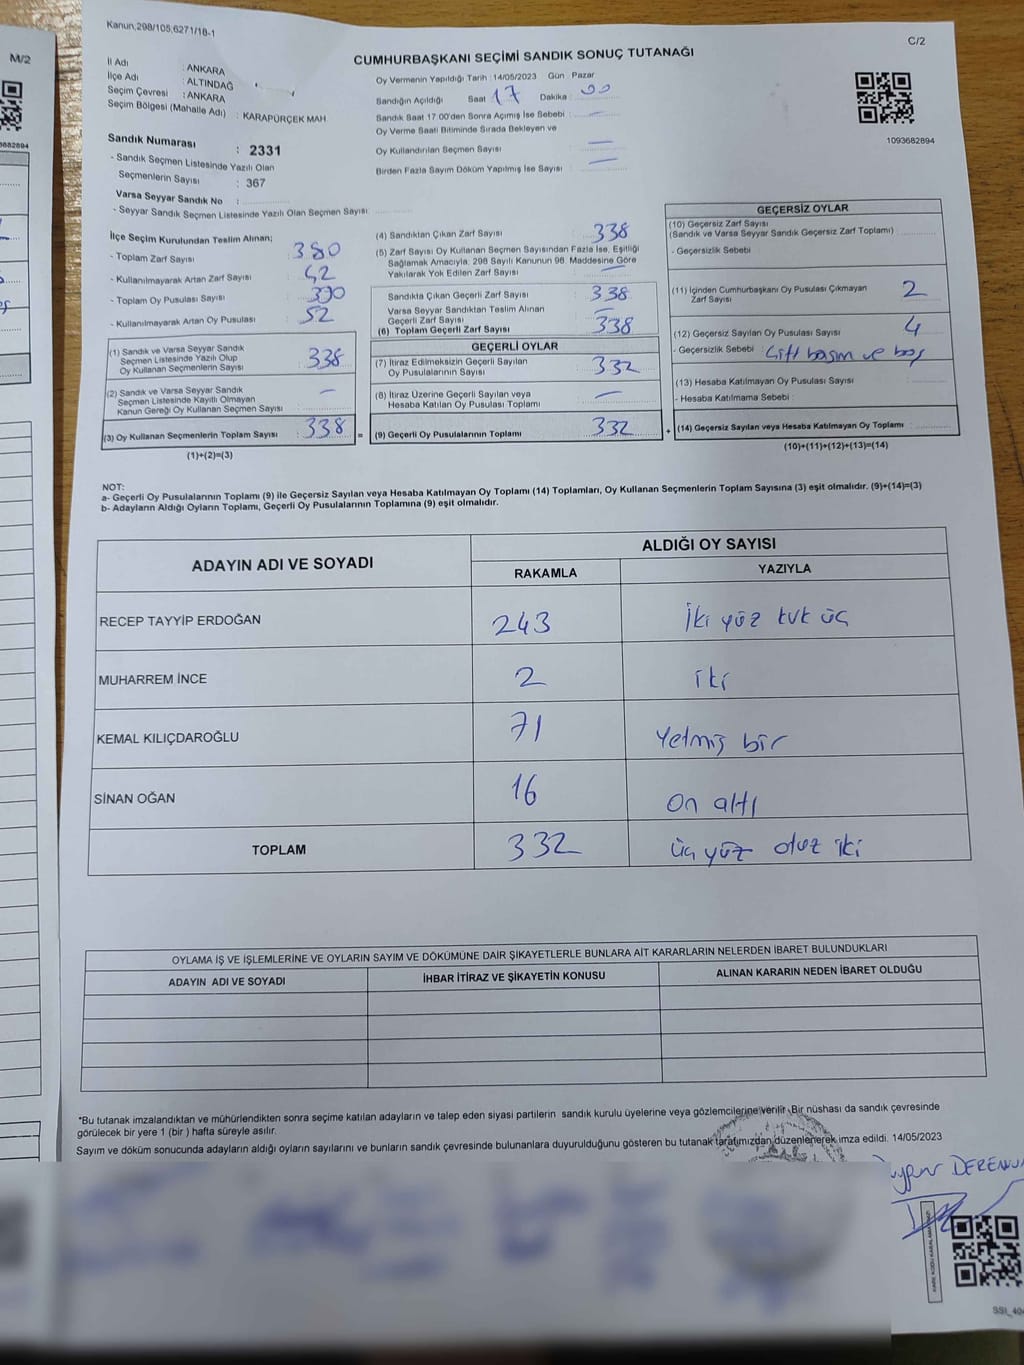 Kanun,298/105,6271/18-1
M/2
C/2
CUMHURBAŞKANI SEÇİMİ SANDIK SONUÇ TUTANAĞI
İl Adı : ANKARA
İlçe Adı : ALTINDAĞ
Seçim Çevresi : ANKARA
Seçim Bölgesi (Mahalle Adı) : KARAPÜRÇEK MAH
Sandık Numarası : 2331
- Sandık Seçmen Listesinde Yazılı Olan
Seçmenlerin Sayısı : 367
Varsa Seyyar Sandık No :
- Seyyar Sandık Seçmen Listesinde Yazılı Olan Seçmen Sayısı:
Oy Vermenin Yapıldığı Tarih : 14/05/2023 Gün : Pazar
Sandığın Açıldığı Saat 17 Dakika : 00
Sandık Saat 17:00'den Sonra Açımış İse Sebebi : —
Oy Verme Saati Bitiminde Sırada Bekleyen ve
Oy Kullandırılan Seçmen Sayısı : —
Birden Fazla Sayım Döküm Yapılmış İse Sayısı : —
1093682894
İlçe Seçim Kurulundan Teslim Alınan;
- Toplam Zarf Sayısı : 380
- Kullanılmayarak Artan Zarf Sayısı : 42
- Toplam Oy Pusulası Sayısı : 390
- Kullanılmayarak Artan Oy Pusulası : 52
(1) Sandık ve Varsa Seyyar Sandık
Seçmen Listesinde Yazılı Olup
Oy Kullanan Seçmenlerin Sayısı : 338
(2) Sandık ve Varsa Seyyar Sandık
Seçmen Listesinde Kayıtlı Olmayan
Kanun Gereği Oy Kullanan Seçmen Sayısı : —
(3) Oy Kullanan Seçmenlerin Toplam Sayısı : 338 =
(1)+(2)=(3)
(4) Sandıktan Çıkan Zarf Sayısı : 338
(5) Zarf Sayısı Oy Kullanan Seçmen Sayısından Fazla İse, Eşitliği
Sağlamak Amacıyla, 298 Sayılı Kanunun 98. Maddesine Göre
Yakılarak Yok Edilen Zarf Sayısı : —
Sandıkta Çıkan Geçerli Zarf Sayısı : 338
Varsa Seyyar Sandıktan Teslim Alınan
Geçerli Zarf Sayısı : —
(6) Toplam Geçerli Zarf Sayısı : 338
GEÇERLİ OYLAR
(7) İtiraz Edilmeksizin Geçerli Sayılan
Oy Pusulalarının Sayısı : 332
(8) İtiraz Üzerine Geçerli Sayılan veya
Hesaba Katılan Oy Pusulası Toplamı : —
(9) Geçerli Oy Pusulalarının Toplamı : 332 +
GEÇERSİZ OYLAR
(10) Geçersiz Zarf Sayısı
(Sandık ve Varsa Seyyar Sandık Geçersiz Zarf Toplamı) :
- Geçersizlik Sebebi :
(11) İçinden Cumhurbaşkanı Oy Pusulası Çıkmayan
Zarf Sayısı : 2
(12) Geçersiz Sayılan Oy Pusulası Sayısı : 4
- Geçersizlik Sebebi : Çift basım ve boş
(13) Hesaba Katılmayan Oy Pusulası Sayısı :
- Hesaba Katılmama Sebebi :
(14) Geçersiz Sayılan veya Hesaba Katılmayan Oy Toplamı :
(10)+(11)+(12)+(13)=(14)
NOT:
a- Geçerli Oy Pusulalarının Toplamı (9) ile Geçersiz Sayılan veya Hesaba Katılmayan Oy Toplamı (14) Toplamları, Oy Kullanan Seçmenlerin Toplam Sayısına (3) eşit olmalıdır. (9)+(14)=(3)
b- Adayların Aldığı Oyların Toplamı, Geçerli Oy Pusulalarının Toplamına (9) eşit olmalıdır.
ADAYIN ADI VE SOYADI
ALDIĞI OY SAYISI
RAKAMLA YAZIYLA
RECEP TAYYİP ERDOĞAN 243 İki yüz kırk üç
MUHARREM İNCE 2 iki
KEMAL KILIÇDAROĞLU 71 Yetmiş bir
SİNAN OĞAN 16 on altı
TOPLAM 332 üç yüz otuz iki
OYLAMA İŞ VE İŞLEMLERİNE VE OYLARIN SAYIM VE DÖKÜMÜNE DAİR ŞİKAYETLERLE BUNLARA AİT KARARLARIN NELERDEN İBARET BULUNDUKLARI
ADAYIN ADI VE SOYADI İHBAR İTİRAZ VE ŞİKAYETİN KONUSU ALINAN KARARIN NEDEN İBARET OLDUĞU
*Bu tutanak imzalandıktan ve mühürlendikten sonra seçime katılan adayların ve talep eden siyasi partilerin sandık kurulu üyelerine veya gözlemcilerine verilir. Bir nüshası da sandık çevresinde
görülecek bir yere 1 (bir ) hafta süreyle asılır.
Sayım ve döküm sonucunda adayların aldığı oyların sayılarını ve bunların sandık çevresinde bulunanlara duyurulduğunu gösteren bu tutanak tarafımızdan düzenlenerek imza edildi. 14/05/2023